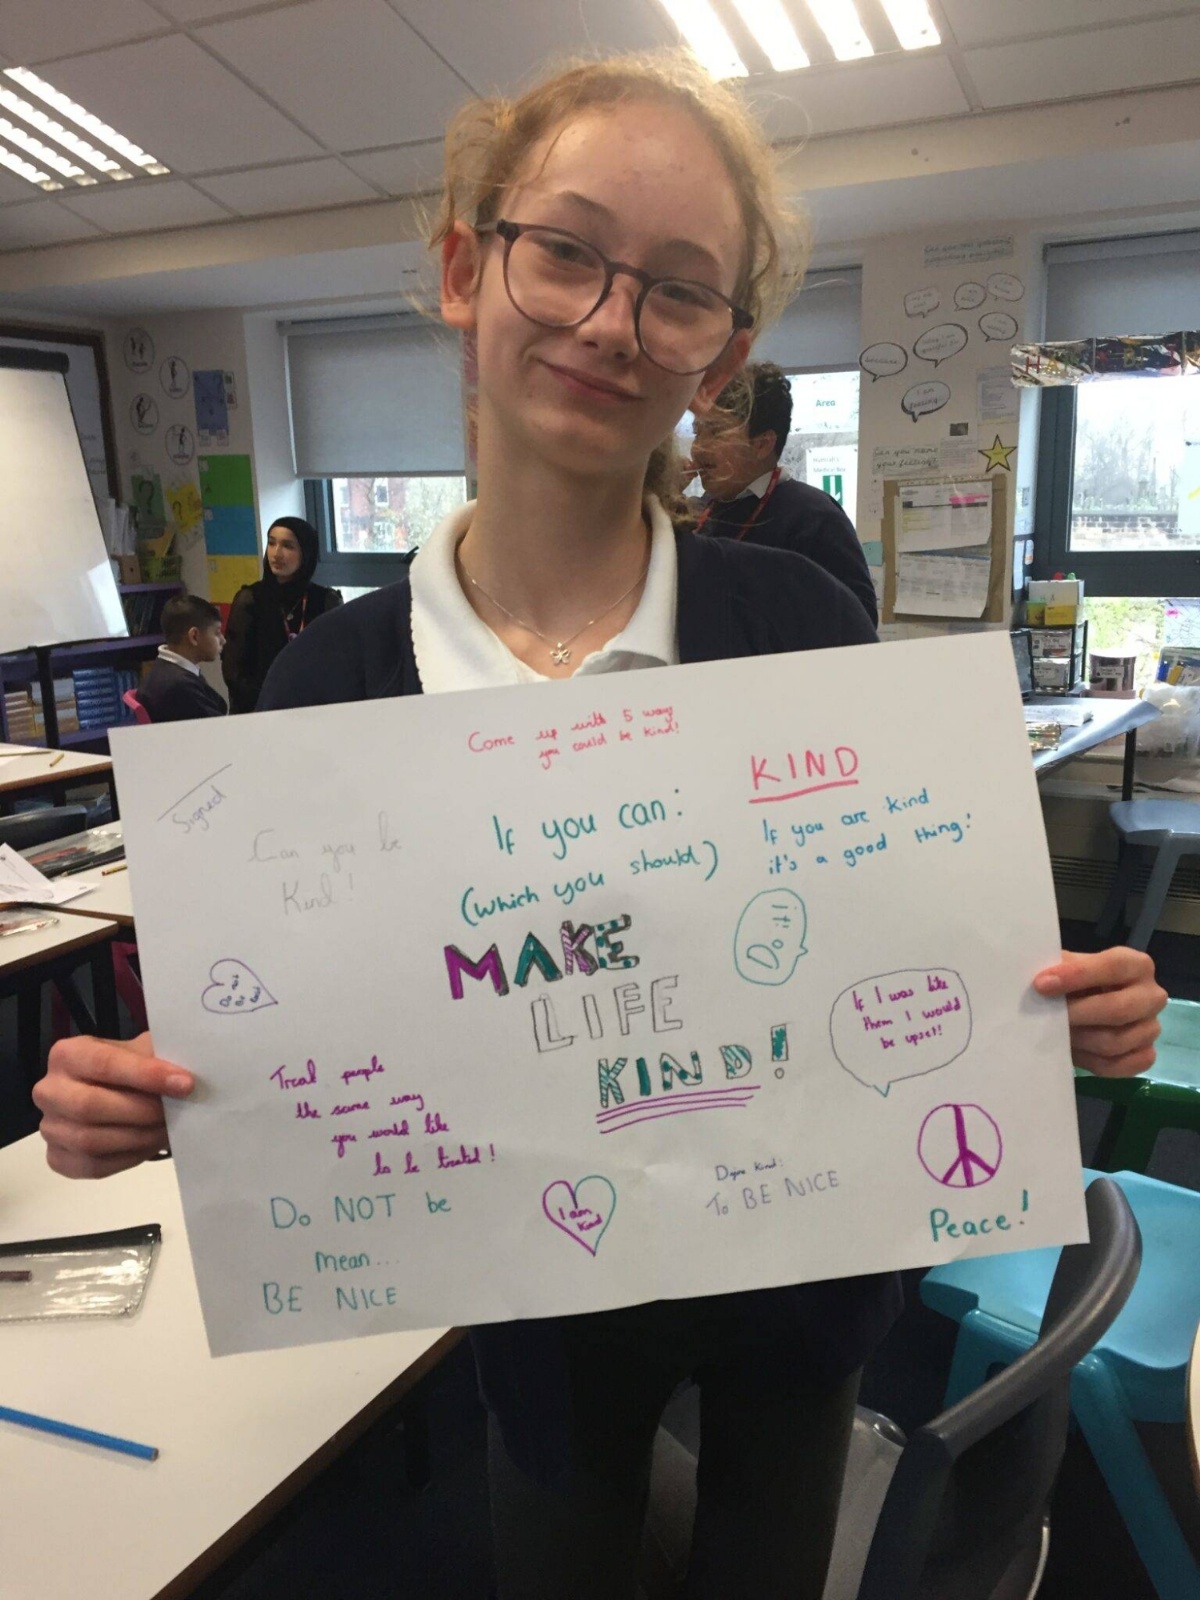 Area
Come up with 5 way
you could be kind!
Signed
Can you be
Kind!
If you can:
(which you should)
MAKE
LIFE
KIND!
KIND
If you are kind
it's a good thing!
Do
it!
If I was like
them I would
be upset!
Treat people
the same way
you would like
to be treated!
Do NOT be
mean...
BE NICE
I am
Kind
Kind:
To BE NICE
Peace!